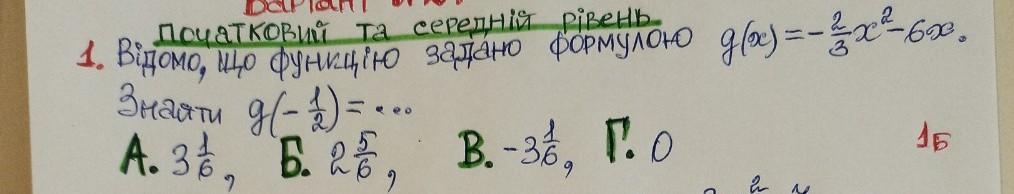 Початковий та середній рівень
1. Відомо, що функцію задано формулою g(x) = -2/3 x² - 6x.
Знайти g(-1/2) = ...
А. 3 1/6, Б. 2 5/6, В. -3 1/6, Г. 0
1Б